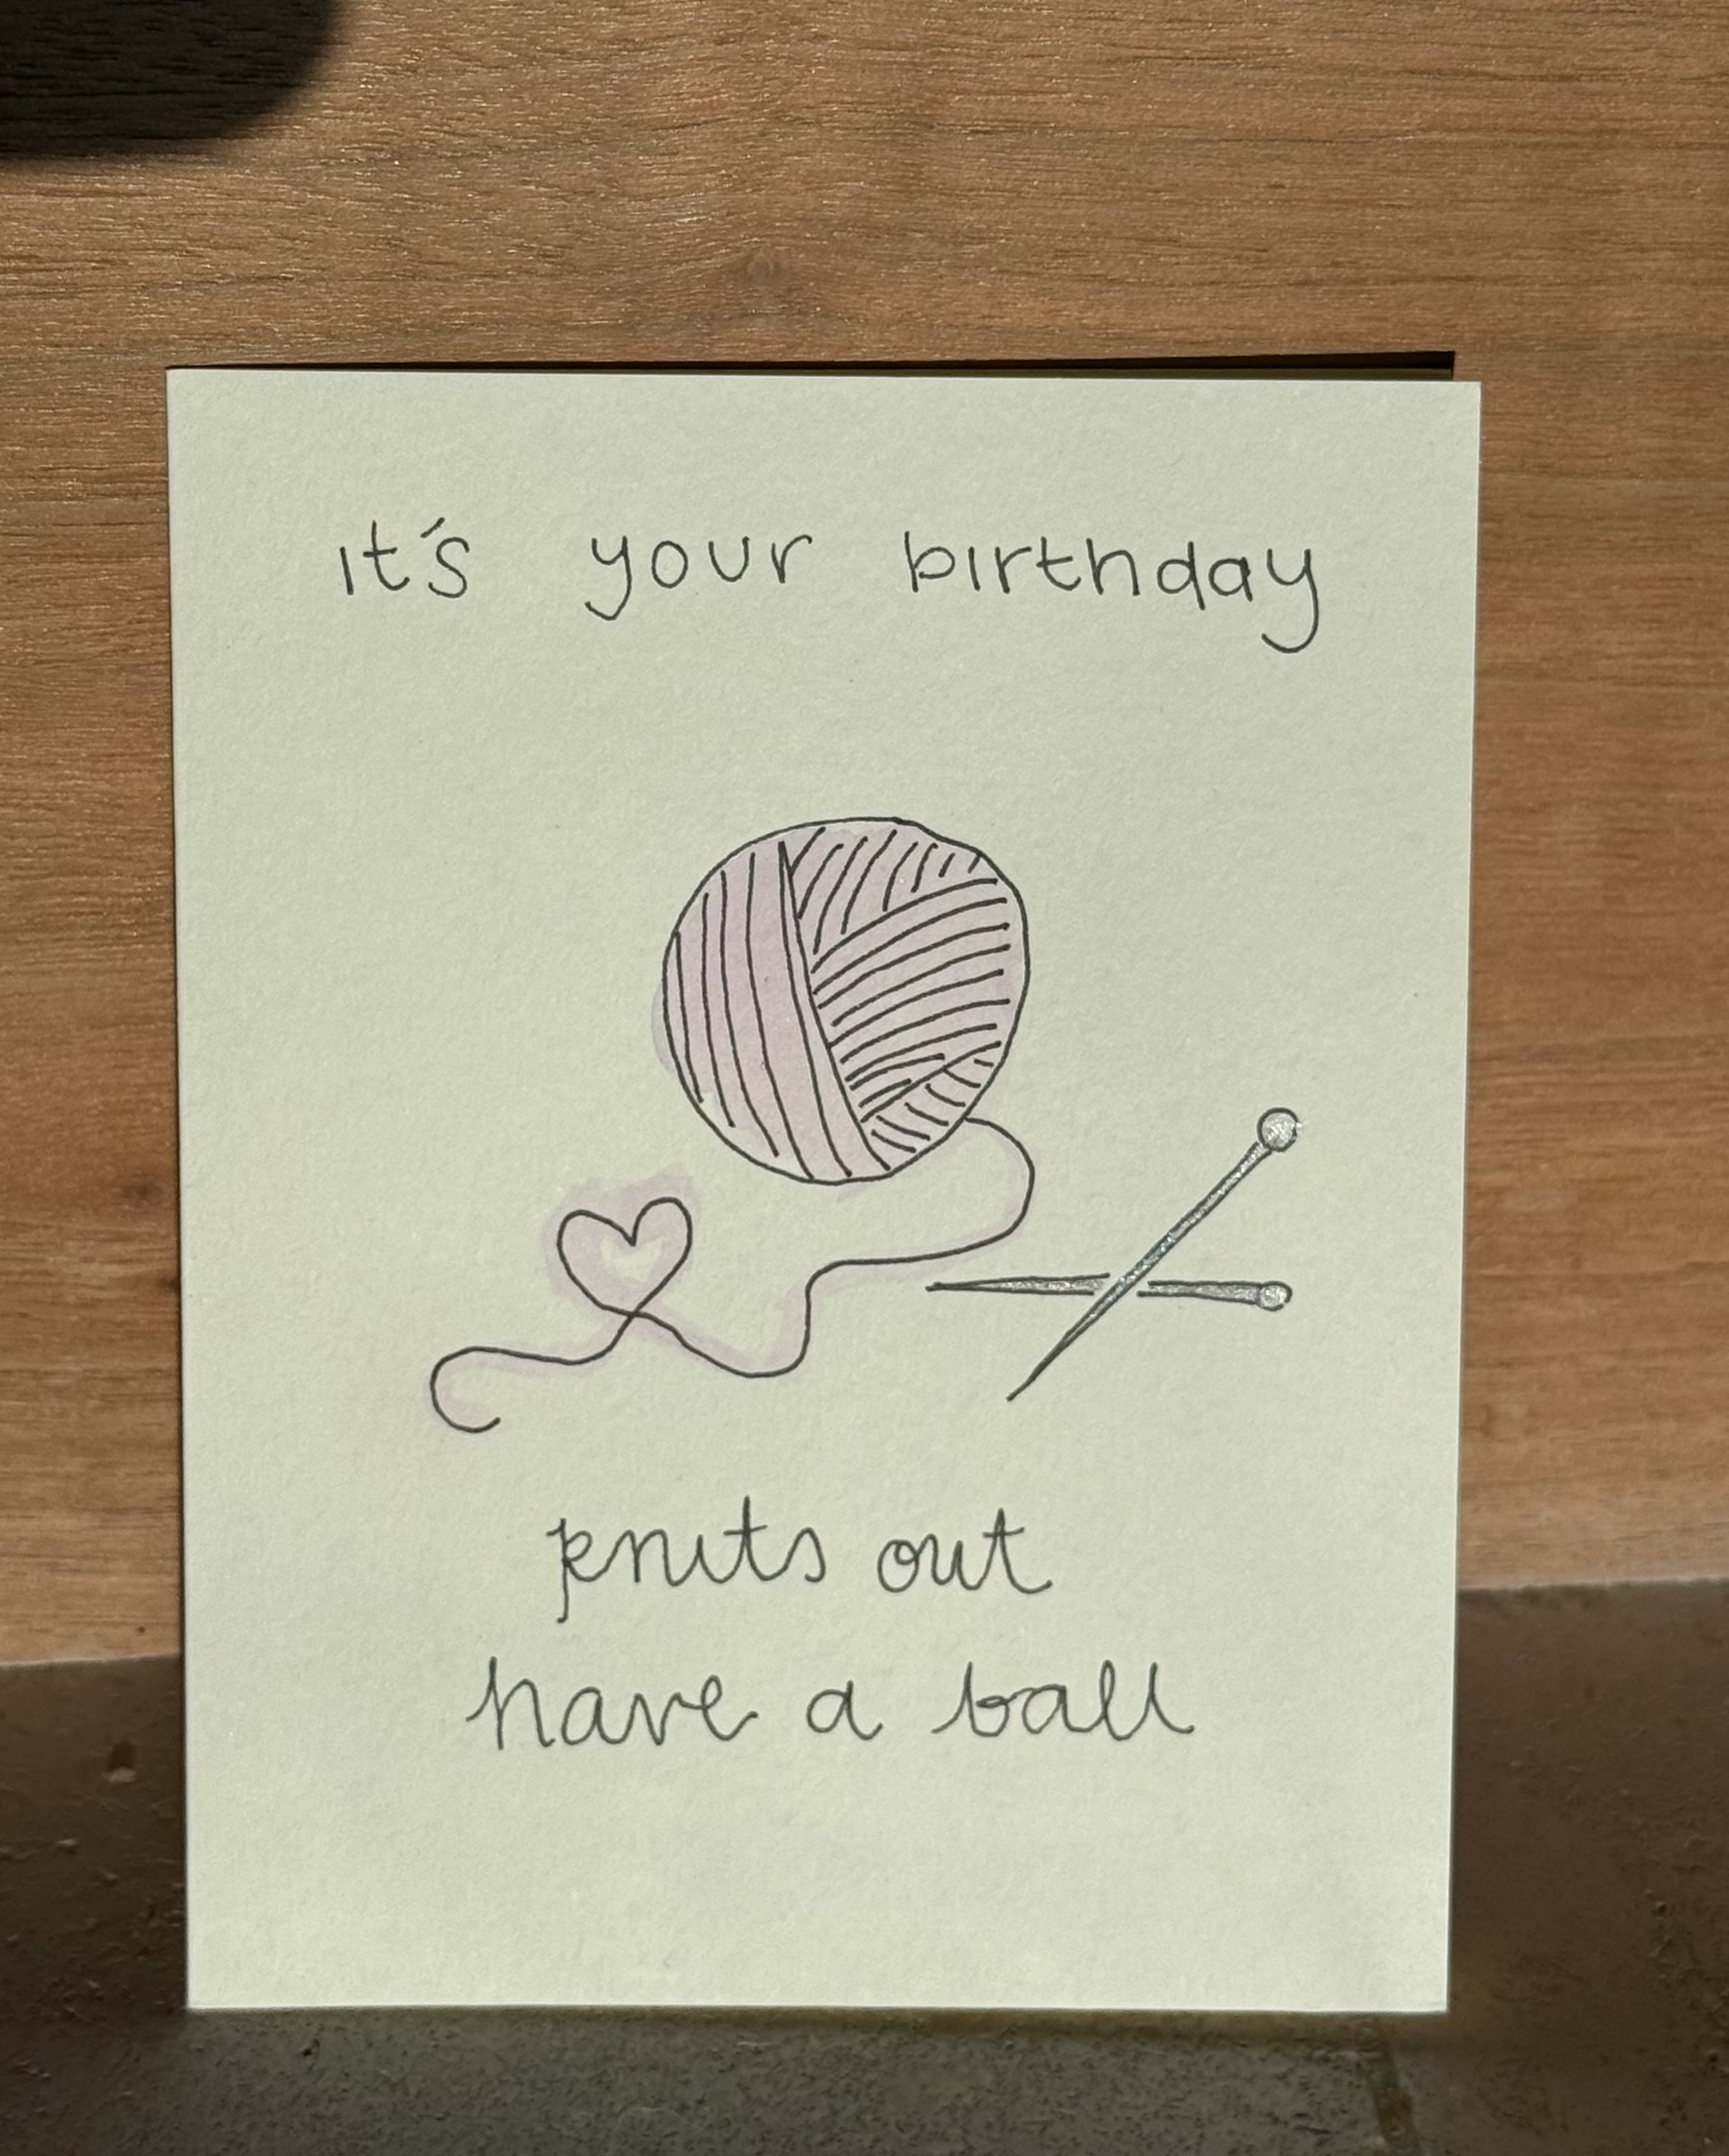 it's your birthday
knits out
have a ball